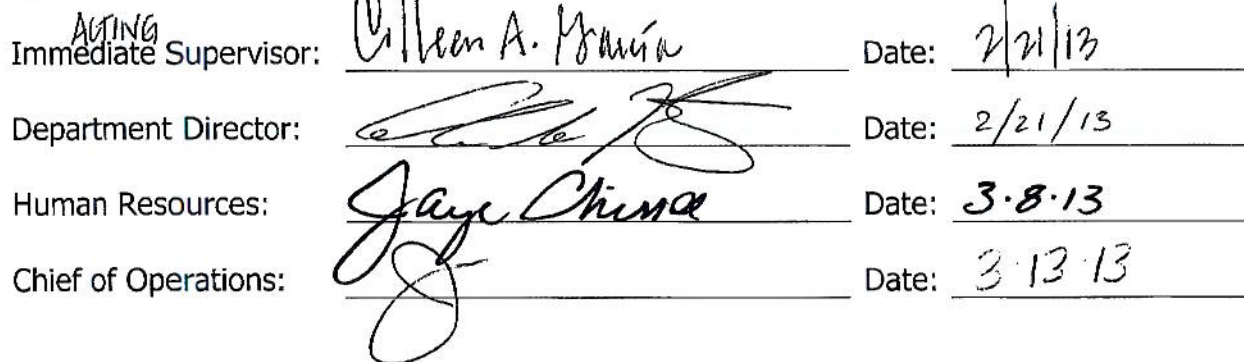 ACTING
Immediate Supervisor: A. Date: 2/21/13
Department Director: Date: 2/21/13
Human Resources: Jaye Date: 3.8.13
Chief of Operations: Date: 3.13.13